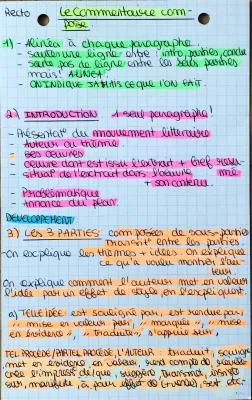 Recto Le Commentaire com-
posé
1) - Alinéa à chaque paragraphe
- sauter une ligne entre : intro, parties, conclu
- saute pas de ligne entre les sous parties
mais ALINEA
- ON INDIQUE JAMAIS CE QUE L'ON FAIT.
2) INTRODUCTION 1 seul paragraphe!
- Présentat° du mouvement littéraire
- Auteur du thème
- ses oeuvres
- oeuvre dont est issu l'extrait + bref résu-
mé
- situat° de l'extrait dans l'oeuvre
+ son contenu
- Problématique
- Annonce du plan
DEVELOPPEMENT
3) LES 3 PARTIES composées de sous-parties
Transit° entre les parties
- On explique les thèmes + idées. On explique
ce qu'a voulu montrer l'au-
teur
On explique comment l'auteur met en valeur
l'idée par un effet de style, en l'expliquant.
a) TELLE IDÉE est souligné par, est rendue par,
"mise en valeur par", "marquée", "mise
en évidence", "traduite", s'appuie sur
TEL PROCÉDÉ / PAR TEL PROCÉDÉ, L'AUTEUR traduit, souligne
met en évidence, en valeur, rend compte de,
crée l'impress° de/que, suggère, transmet, insiste
sur, manifeste, a pour effet de (+ verbe), sert